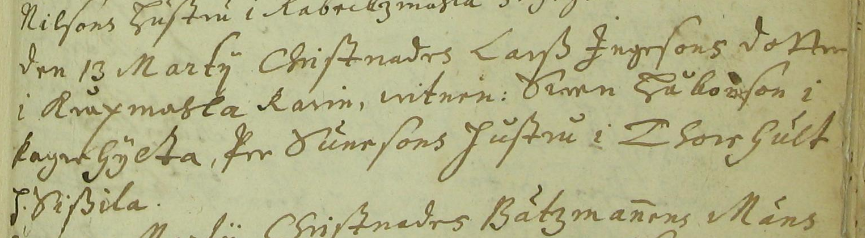 Nilsons Hustru i
den 13 Martÿ Christnades Larß Ingesons dotter
i Kråxmåhla Karin, witnen: Swen Håkonson i
Fagrehÿlta, Per Sunesons Hustru i Thorshult
H. Sißila.
Christnades Båtzmañens Måns